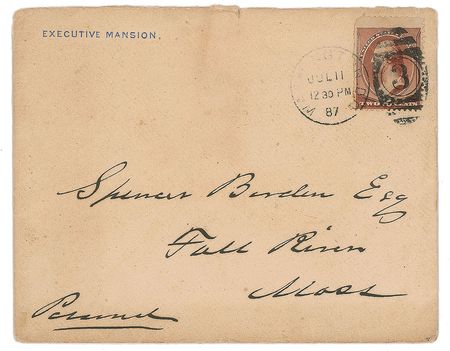 EXECUTIVE MANSION.
JUL 11
12 30 PM
87
3
TWO CENTS
Spencer Borden Esq
Fall River
Mass
Personal